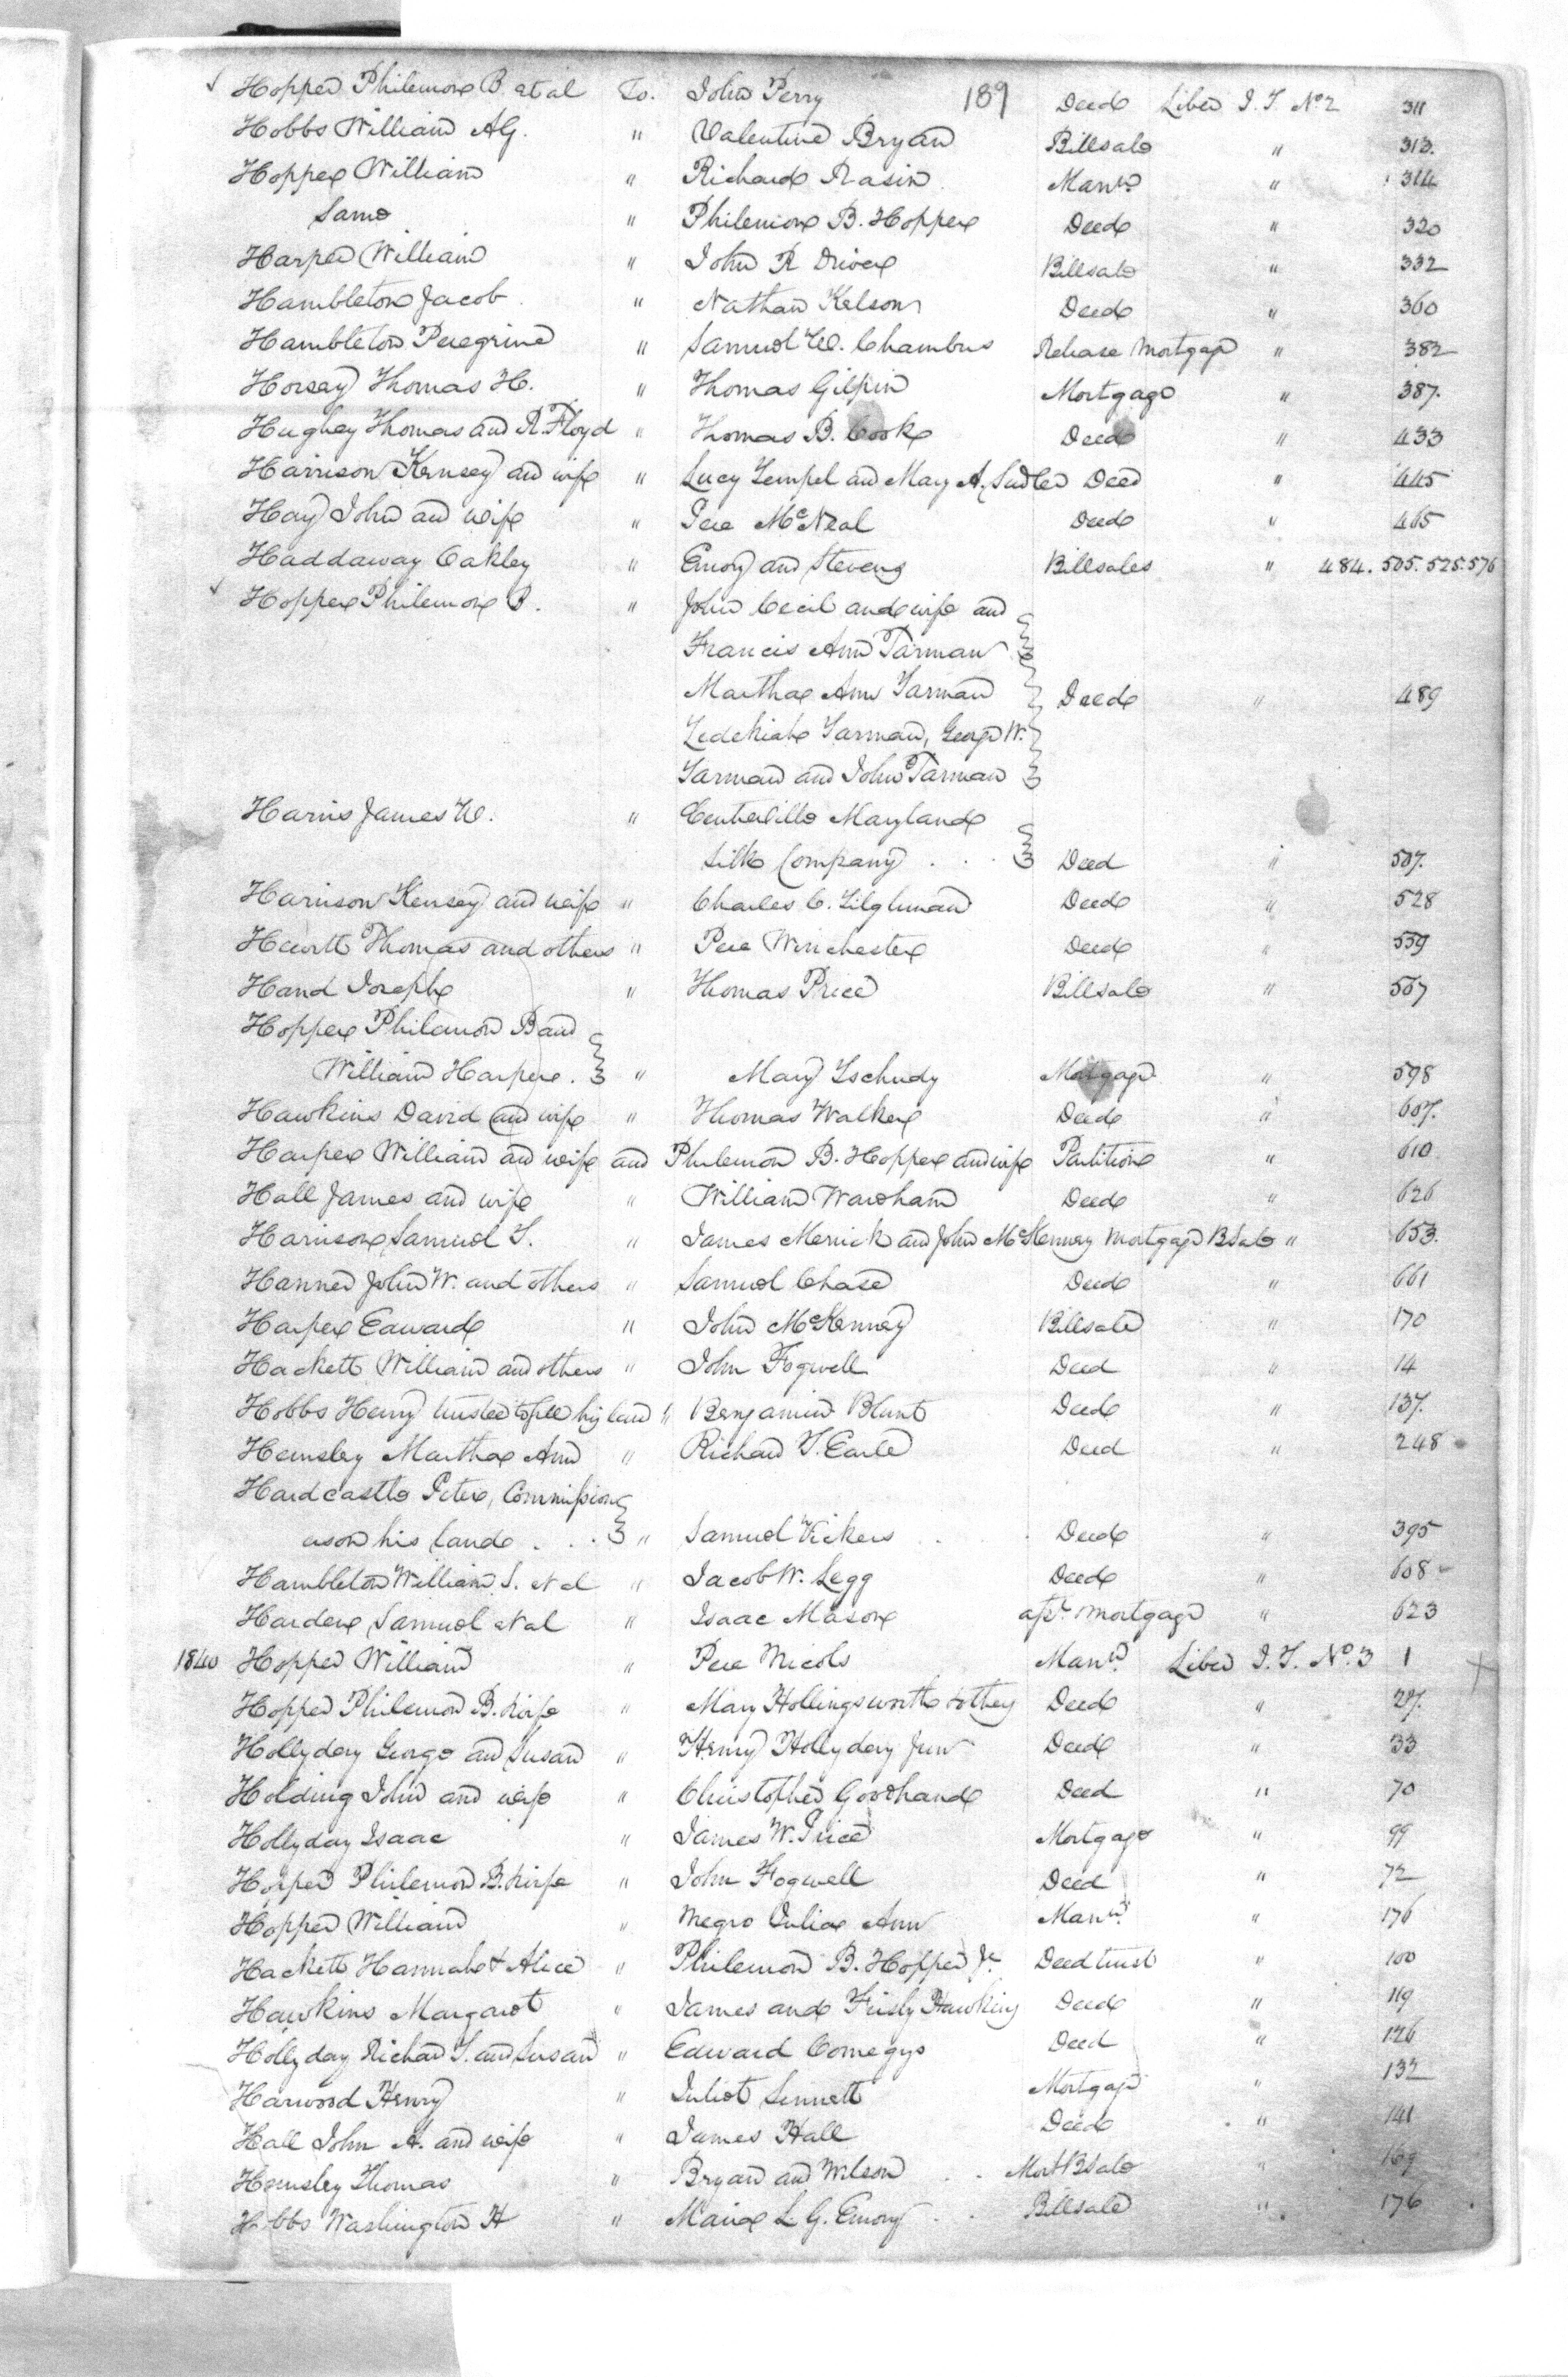 ✓ Hopper Philemon B. et al To. John Perry 189 Deed Liber J. T. No. 2 311
Hobbs William AG. " Valentine Bryan Billsale " 313.
Hopper William " Richard Rasin Mann. " 314
Same " Philemon B. Hopper Deed " 320
Harper William " John R Driver Billsale " 332
Hambleton Jacob " Nathan Kelson Deed " 360
Hambleton Peregrine " Samuel W. Chambers Release Mortgage " 382
Horsey Thomas H. " Thomas Gilpin Mortgage " 387.
Hughey Thomas and R. Floyd " Thomas B. Cook Deed " 433
Harrison Kensey and wife " Lucy Tempel and Mary A. Sudler Deed " 445
Hay John and wife " Pere McNeal Deed " 465
Haddaway Oakley " Emory and Stevens Billsales " 484. 505. 525. 576
✓ Hopper Philemon B. " John Cecil and wife and
Francis Ann Tarman
Martha Ann Tarman Deed " 489
Zedekiah Tarman, George W.
Tarman and John Tarman
Harris James W. " Centreville Maryland
Silk Company . . . Deed " 507.
Harrison Kensey and wife " Charles C. Tilghman Deed " 528
Hewitt Thomas and others " Pere Winchester Deed " 559
Hand Joseph " Thomas Price Billsale " 567
Hopper Philemon B and
William Harper . " Mary Tschudy Mortgage " 598
Hawkins David and wife " Thomas Walker Deed " 607.
Harper William and wife and Philemon B. Hopper and wife Partition " 610
Hall James and wife " William Wareham Deed " 626
Harrison Samuel T. " James Merrick and John McKenney Mortgage B Sale " 653.
Hanner John W. and others " Samuel Chase Deed " 661
Harper Edward " John McKenney Billsale " 170
Hackett William and others " John Fogwell Deed " 14
Hobbs Henry trustee to sell his land " Benjamin Blunt Deed " 137.
Hemsley Martha Ann " Richard T. Earle Deed " 248
Hardcastle Peter, Commission
ers on his land . . . " Samuel Vickers . . Deed " 395
Hambleton William S. et al " Jacob W. Legg Deed " 608
Harden Samuel et al " Isaac Mason Mortgage " 623
1840 Hopper William " Pere Nicols Mann. Liber J. T. No. 3 1
Hopper Philemon B. & wife " Mary Hollingsworth & others Deed " 27.
Hollyday George and Susan " Henry Hollyday Jun Deed " 33
Holding John and wife " Christopher Goodhand Deed " 70
Hollyday Isaac " James W. Price Mortgage " 99
Hopper Philemon B. & wife " John Fogwell Deed " 72
Hopper William " Negro Julia Ann Mann. " 176
Hackett Hannah & Alice " Philemon B. Hopper Jr. Deed trust " 100
Hawkins Margaret " James and Frisby Hawkins Deed " 119
Hollyday Richard T. and Susan " Edward Comegys Deed " 126
Harwood Henry " Juliet Sennett Mortgage " 132
Hall John A. and wife " James Hall Deed " 141
Hemsley Thomas " Bryan and Wilson . . Mort B Sale " 169
Hobbs Washington H " Maria L. G. Emory . . Billsale " 176